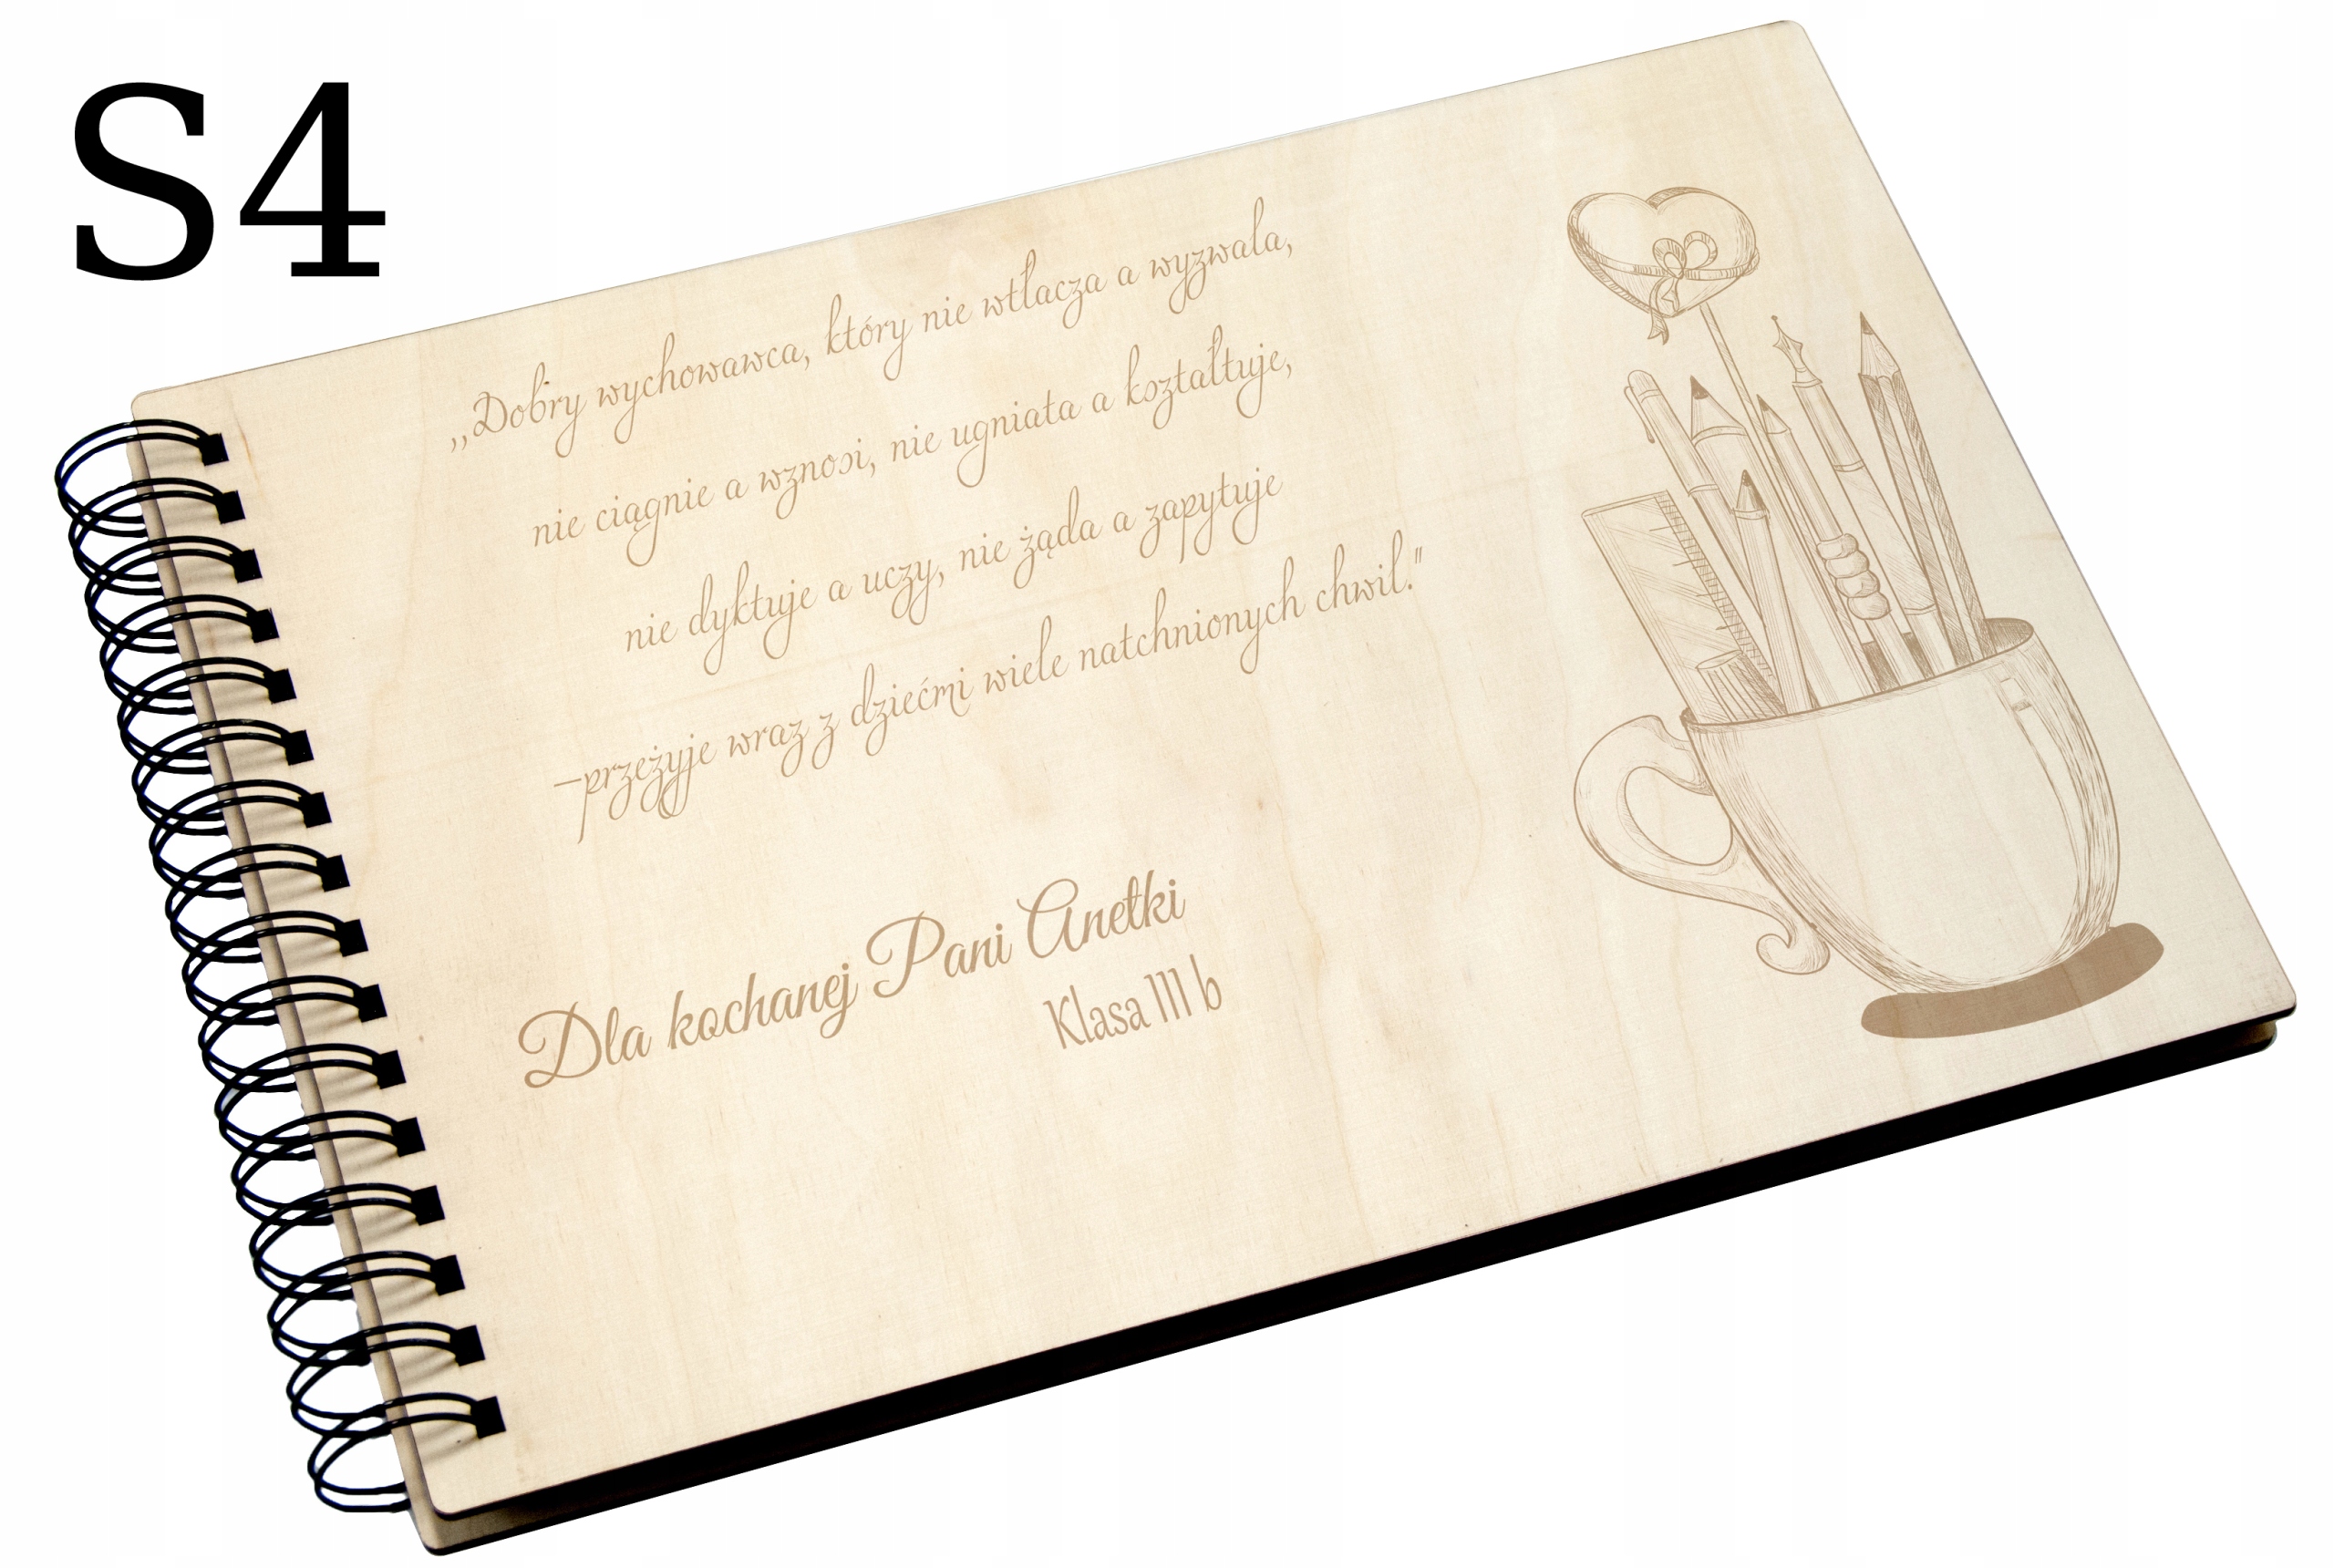 S4
,,Dobry wychowawca, który nie wtłacza a wyzwala,
nie ciągnie a wznosi, nie ugniata a kształtuje,
nie dyktuje a uczy, nie żąda a zapytuje
–przeżyje wraz z dziećmi wiele natchnionych chwil."
Dla kochanej Pani Anetki
Klasa III b